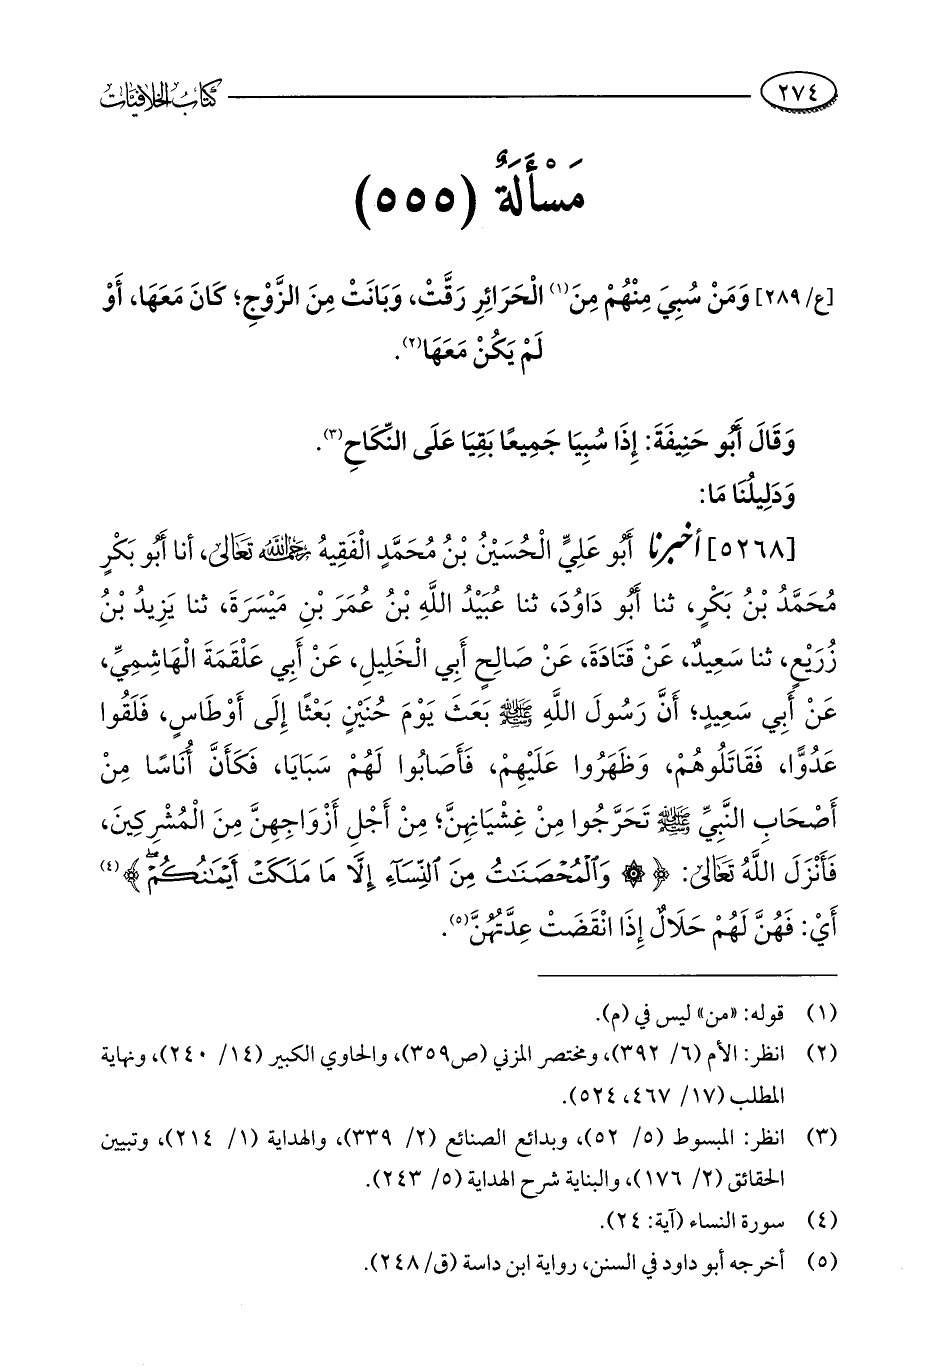 ٢٧٤ كتاب الخلافيات
مَسْأَلَةٌ (٥٥٥)
[ع/ ٢٨٩] وَمَنْ سُبِيَ مِنْهُمْ مِنَ(١) الْحَرَائِرِ رَقَّتْ، وَبَانَتْ مِنَ الزَّوْجِ؛ كَانَ مَعَهَا، أَوْ
لَمْ يَكُنْ مَعَهَا(٢).
وَقَالَ أَبُو حَنِيفَةَ: إِذَا سُبِيَا جَمِيعًا بَقِيَا عَلَى النِّكَاحِ(٣).
وَدَلِيلُنَا مَا:
[٥٢٦٨] أخبرنا أَبُو عَلِيٍّ الْحُسَيْنُ بْنُ مُحَمَّدٍ الْفَقِيهُ رَحِمَهُ اللَّهُ تَعَالَى، أنا أَبُو بَكْرٍ
مُحَمَّدُ بْنُ بَكْرٍ، ثنا أَبُو دَاوُدَ، ثنا عُبَيْدُ اللَّهِ بْنُ عُمَرَ بْنِ مَيْسَرَةَ، ثنا يَزِيدُ بْنُ
زُرَيْعٍ، ثنا سَعِيدٌ، عَنْ قَتَادَةَ، عَنْ صَالِحٍ أَبِي الْخَلِيلِ، عَنْ أَبِي عَلْقَمَةَ الْهَاشِمِيِّ،
عَنْ أَبِي سَعِيدٍ؛ أَنَّ رَسُولَ اللَّهِ ﷺ بَعَثَ يَوْمَ حُنَيْنٍ بَعْثًا إِلَى أَوْطَاسٍ، فَلَقُوا
عَدُوًّا، فَقَاتَلُوهُمْ، وَظَهَرُوا عَلَيْهِمْ، فَأَصَابُوا لَهُمْ سَبَايَا، فَكَأَنَّ أُنَاسًا مِنْ
أَصْحَابِ النَّبِيِّ ﷺ تَحَرَّجُوا مِنْ غِشْيَانِهِنَّ؛ مِنْ أَجْلِ أَزْوَاجِهِنَّ مِنَ الْمُشْرِكِينَ،
فَأَنْزَلَ اللَّهُ تَعَالَى: ﴿۞ وَٱلْمُحْصَنَٰتُ مِنَ ٱلنِّسَآءِ إِلَّا مَا مَلَكَتْ أَيْمَٰنُكُمْ ۖ﴾(٤)
أَيْ: فَهُنَّ لَهُمْ حَلَالٌ إِذَا انْقَضَتْ عِدَّتُهُنَّ(٥).
(١) قوله: «من» ليس في (م).
(٢) انظر: الأم (٦/ ٣٩٢)، ومختصر المزني (ص٣٥٩)، والحاوي الكبير (١٤/ ٢٤٠)، ونهاية
المطلب (١٧/ ٤٦٧، ٥٢٤).
(٣) انظر: المبسوط (٥/ ٥٢)، وبدائع الصنائع (٢/ ٣٣٩)، والهداية (١/ ٢١٤)، وتبيين
الحقائق (٢/ ١٧٦)، والبناية شرح الهداية (٥/ ٢٤٣).
(٤) سورة النساء (آية: ٢٤).
(٥) أخرجه أبو داود في السنن، رواية ابن داسة (ق/ ٢٤٨).